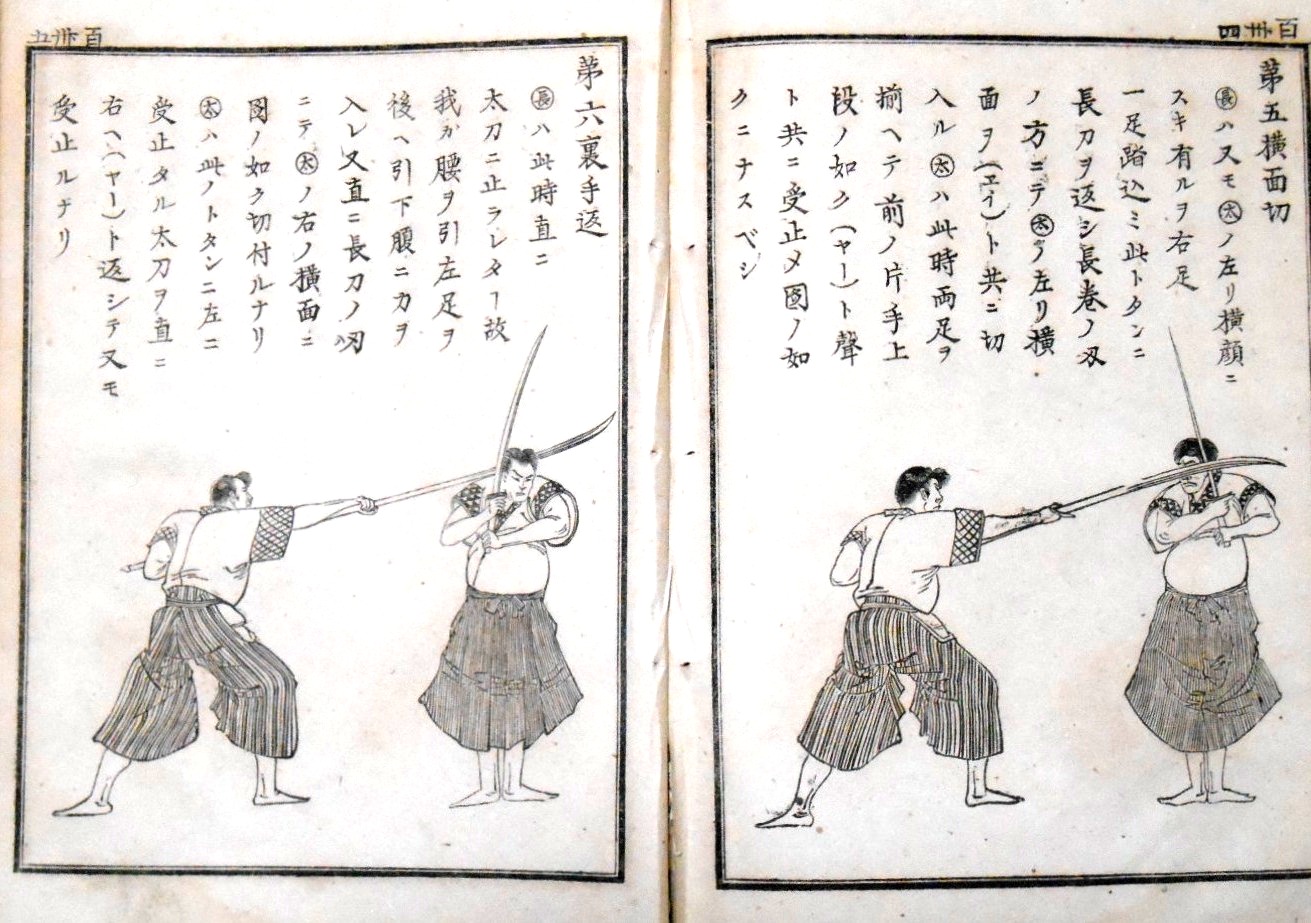 百三十四
第五横面切
㊎ハ又モ㊌ノ左リ横顔ニ
スキ有ルヲ右足
一足踏込ミ此トタンニ
長刀ヲ返シ長巻ノ刄
ノ方ニテ㊌ノ左リ横
面ヲ(エイ)ト共ニ切
入ル㊌ハ此時両足ヲ
揃ヘテ前ノ片手上
段ノ如ク(ヤー)ト聲
ト共ニ受止メ図ノ如
クニナスベシ
百卅五
第六裏手返
長ハ此時直ニ
太刀ニ止ラレタ一故
我カ腰ヲ引左足ヲ
後ヘ引下腰ニカヲ
入レ又直ニ長刀ノ刃
ニテ太ノ右ノ横面ニ
図ノ如ク切付ルナリ
太ハ此ノトタンニ左ニ
受止タル太刀ヲ直ニ
右ヘ(ヤー)ト返シテ又モ
受止ルナリ